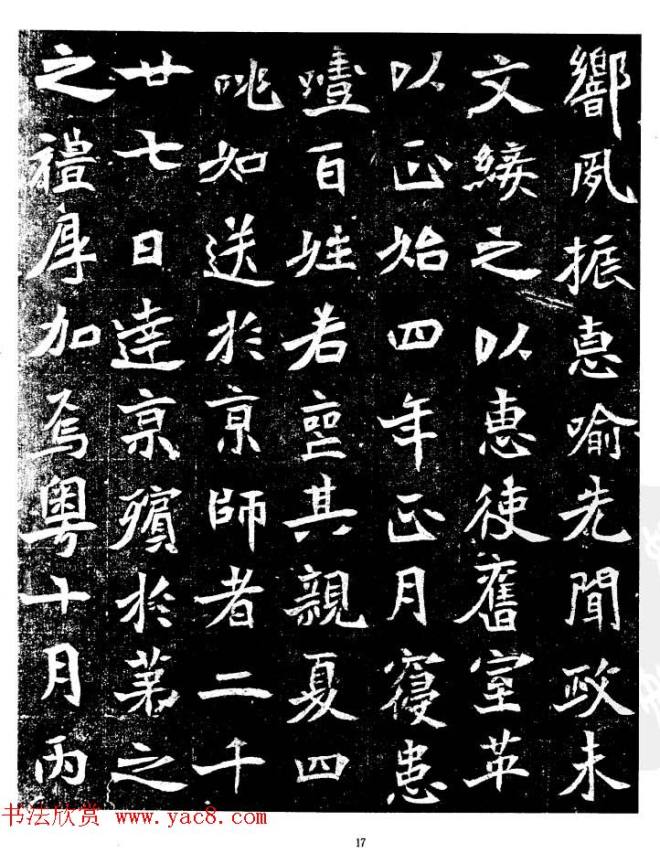 響風振惪喻先聞政未
文緩之以惠徒舊室英
以正始四年正月寢患
噎百姓若喪其親夏四
咷如送於京師者二千
廿七日達京殯於第之
之禮厚加焉粵十月丙
书法欣赏 www.yac8.com
17